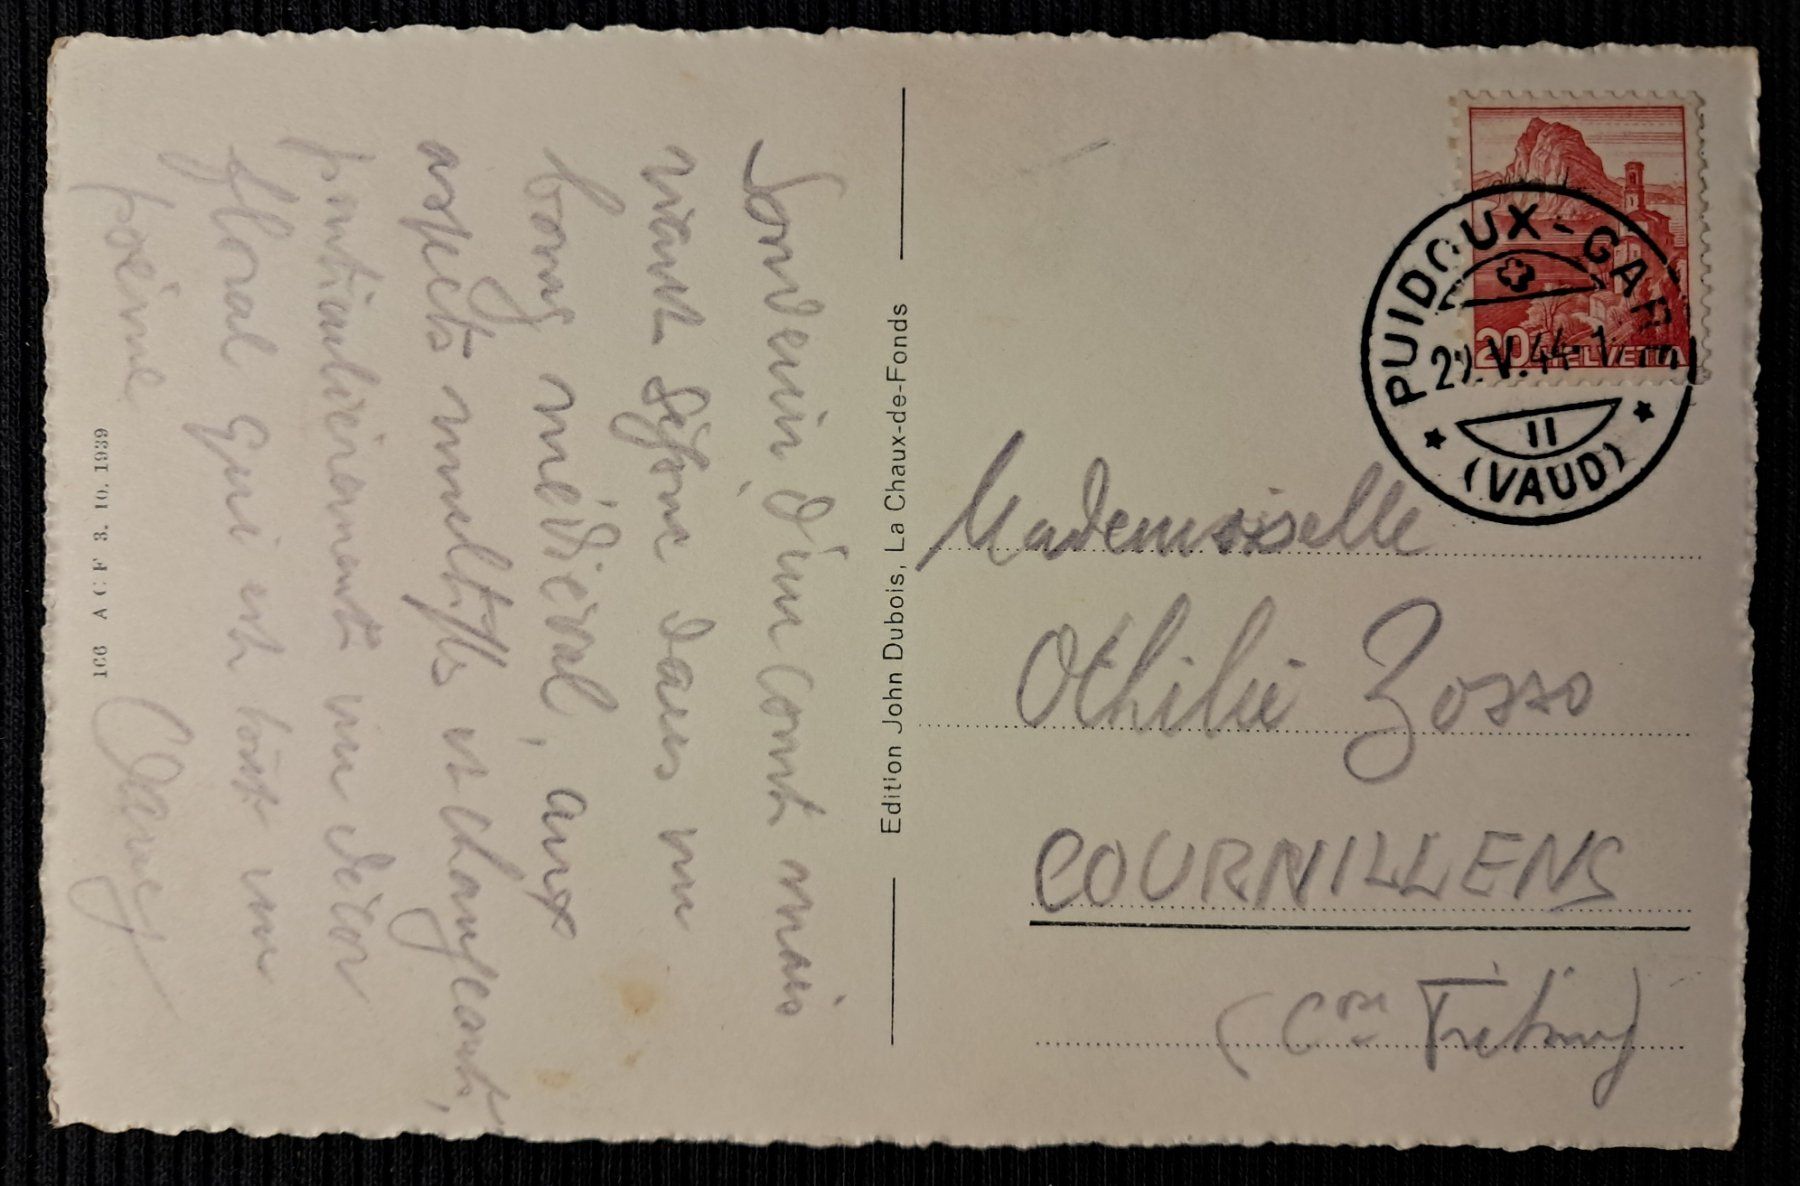 Souvenir d'un court mais
riant séjour dans un
bourg médiéval, aux
aspects multiples et changeants,
particulièrement un décor
floral qui est tout un
poème
166 A C F 3. 10. 1939
Edition John Dubois, La Chaux-de-Fonds
20 HELVETIA
PUIDOUX-GARE
V.44
II
(VAUD)
Mademoiselle
Othilie Zosso
COURNILLENS
(Con Fribourg)